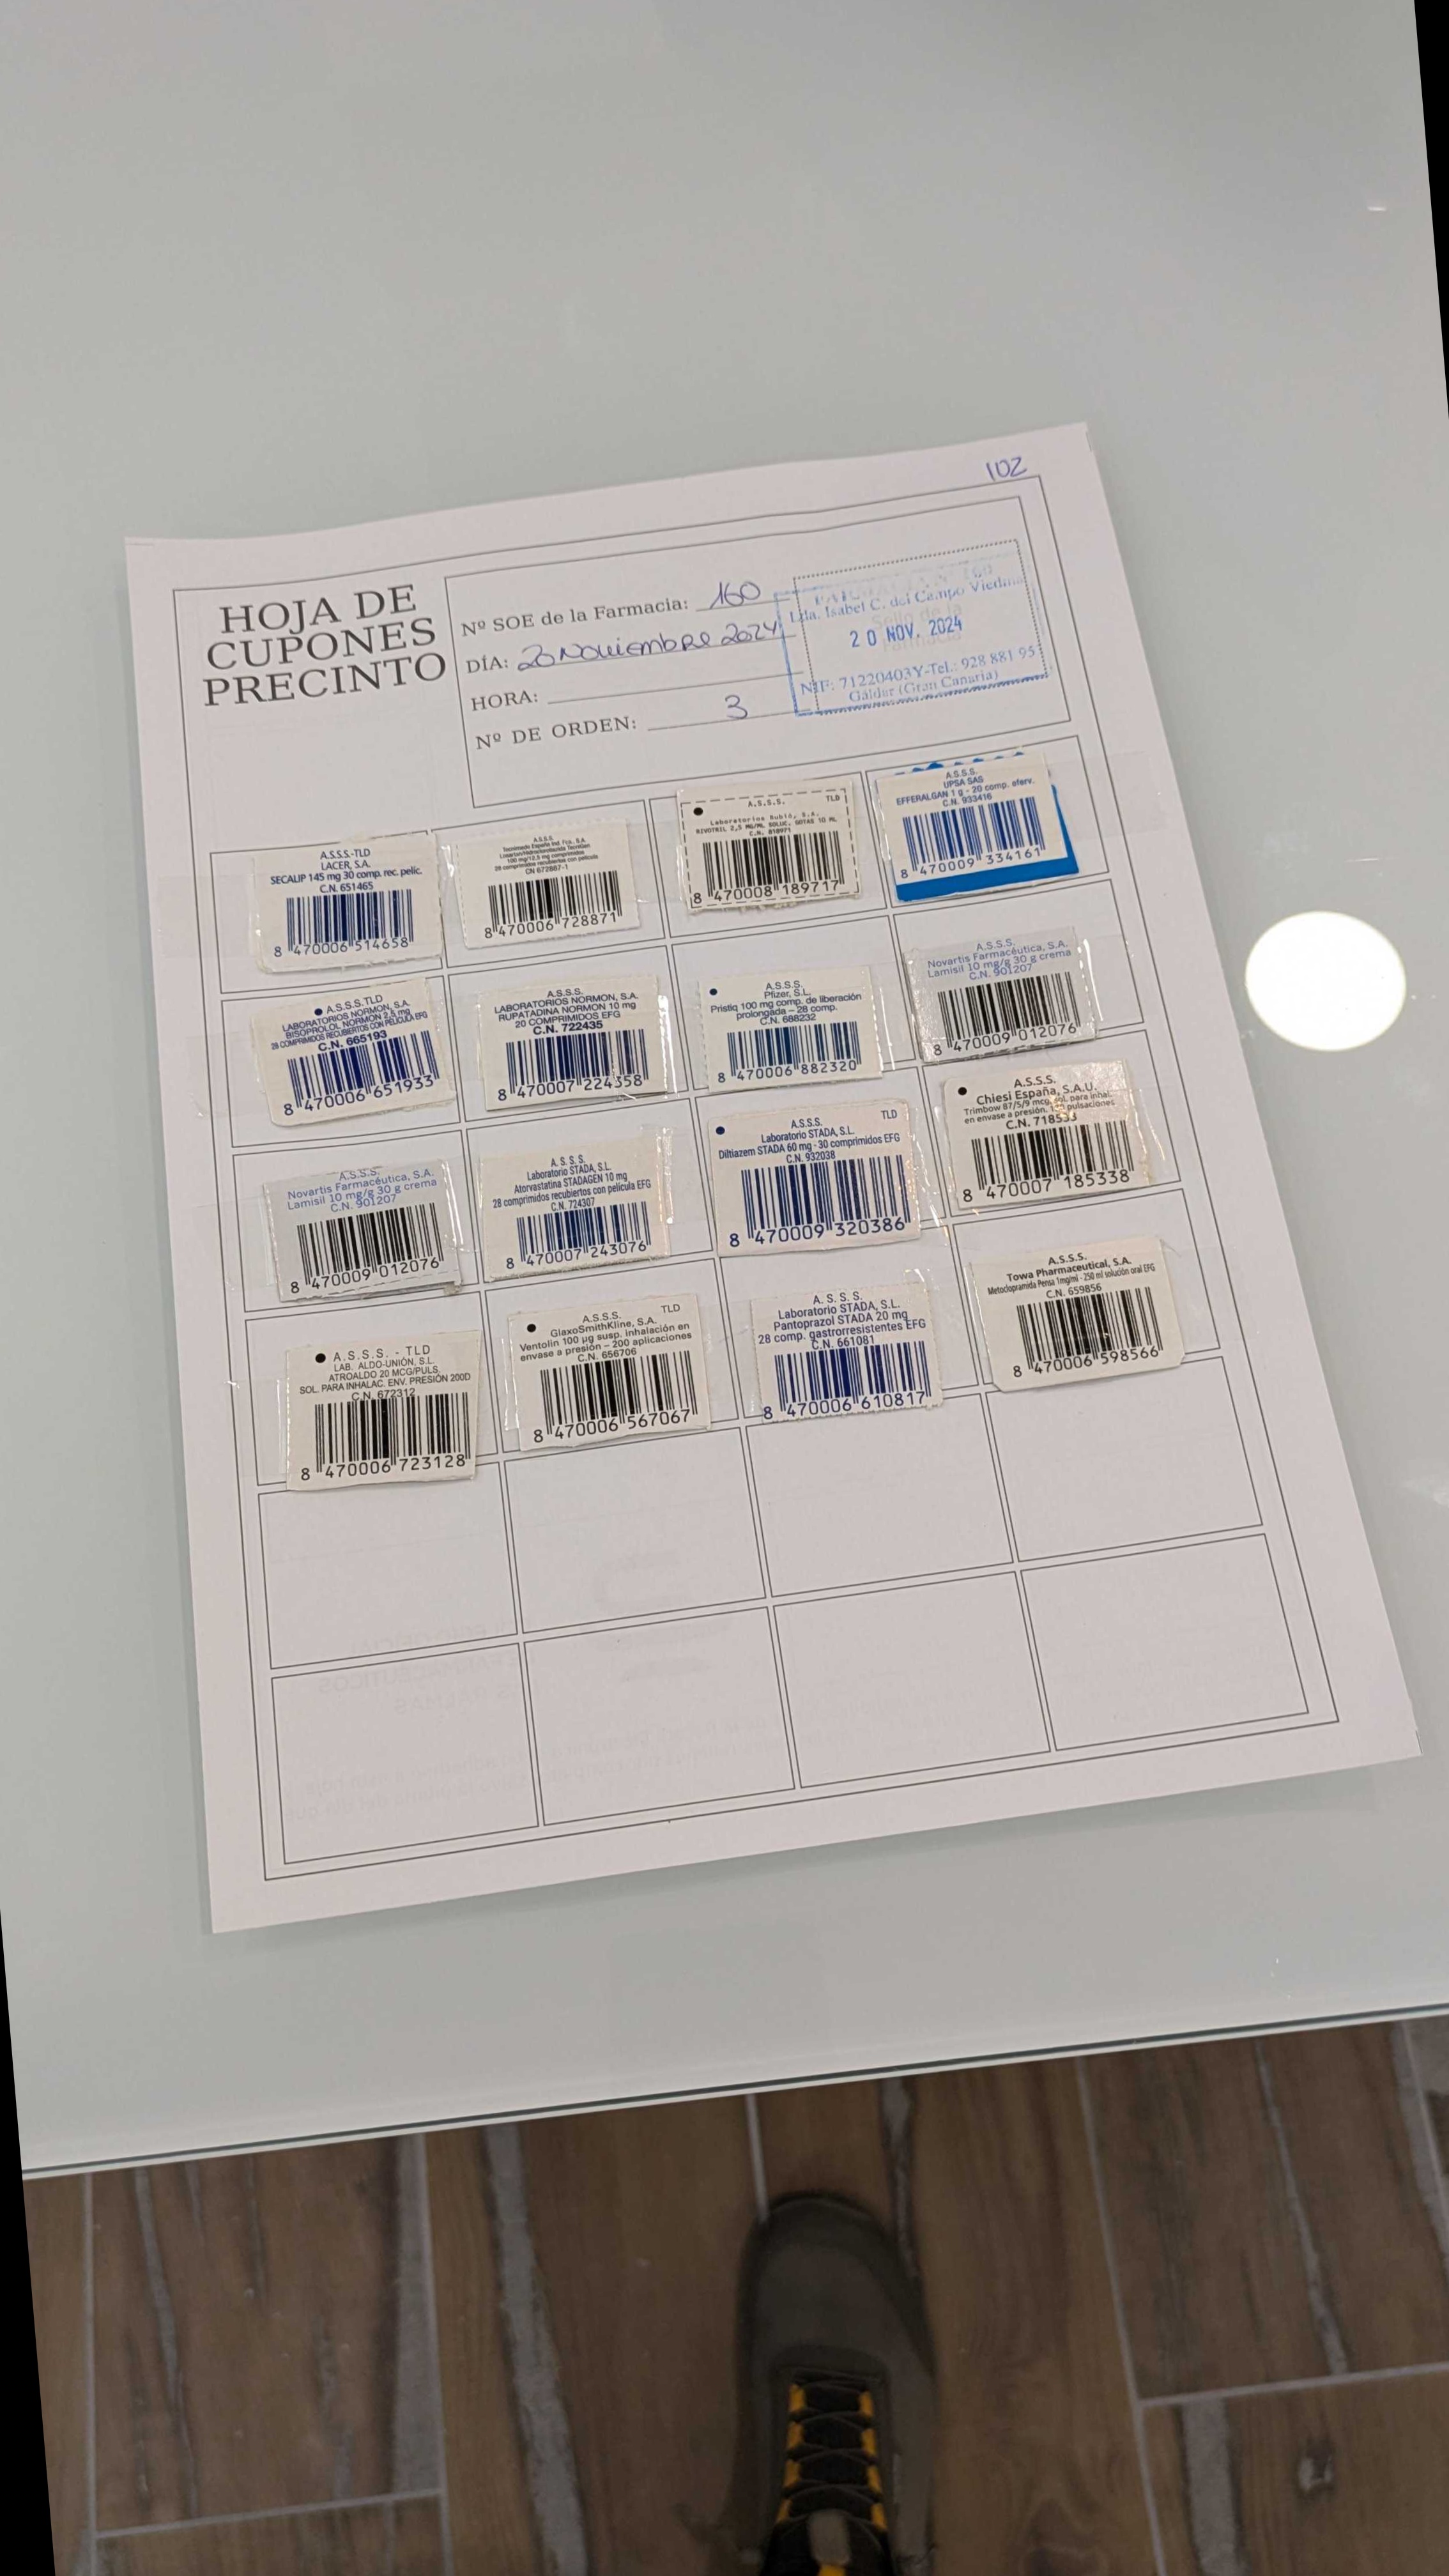 102
HOJA DE
CUPONES
PRECINTO
Nº SOE de la Farmacia: 160
DÍA: 20 Noviembre 2024
HORA:
Nº DE ORDEN: 3
Lda. Isabel C. del Campo Viedma
Sello de la
Farmacia
20 NOV. 2024
NIF: 71220403Y-Tel.: 928 881 95
Gáldar (Gran Canaria)
A.S.S.S.-TLD
LACER, S.A.
SECALIP 145 mg 30 comp. rec. pelíc.
C.N. 651465
8 470006 514658
A.S.S.S.
Tecnimede España Ind. Fca., S.A.
Losartan/Hidroclorotiazida Tecnigen
100 mg/12,5 mg comprimidos
28 comprimidos recubiertos con película
CN 672887-1
8 470006 728871
A.S.S.S. TLD
Laboratorios Rubió, S.A.
RIVOTRIL 2,5 MG/ML SOLUC. GOTAS 10 ML
C.N. 818971
8 470008 189717
A.S.S.S.
UPSA SAS
EFFERALGAN 1 g - 20 comp. eferv.
C.N. 933416
8 470009 334161
A.S.S.S.TLD
LABORATORIOS NORMON, S.A.
BISOPROLOL NORMON 2,5 mg
28 COMPRIMIDOS RECUBIERTOS CON PELICULA EFG
C.N. 665193
8 470006 651933
A.S.S.S.
LABORATORIOS NORMON, S.A.
RUPATADINA NORMON 10 mg
20 COMPRIMIDOS EFG
C.N. 722435
8 470007 224358
A.S.S.S.
Pfizer, S.L.
Pristiq 100 mg comp. de liberación
prolongada – 28 comp.
C.N. 688232
8 470006 882320
A.S.S.S.
Novartis Farmacéutica, S.A.
Lamisil 10 mg/g 30 g crema
C.N. 901207
8 470009 012076
A.S.S.S.
Novartis Farmacéutica, S.A.
Lamisil 10 mg/g 30 g crema
C.N. 901207
8 470009 012076
A.S.S.S.
Laboratorio STADA, S.L.
Atorvastatina STADAGEN 10 mg
28 comprimidos recubiertos con película EFG
C.N. 724307
8 470007 243076
A.S.S.S. TLD
Laboratorio STADA, S.L.
Diltiazem STADA 60 mg - 30 comprimidos EFG
C.N. 932038
8 470009 320386
A.S.S.S.
Chiesi España, S.A.U.
Trimbow 87/5/9 mcg, sol. para inhal.
en envase a presión. pulsaciones
C.N. 718533
8 470007 185338
A.S.S.S. - TLD
LAB. ALDO-UNIÓN, S.L.
ATROALDO 20 MCG/PULS.
SOL. PARA INHALAC. ENV. PRESIÓN 200D
C.N. 672312
8 470006 723128
A.S.S.S. TLD
GlaxoSmithKline, S.A.
Ventolin 100 µg susp. inhalación en
envase a presión – 200 aplicaciones
C.N. 656706
8 470006 567067
A. S. S. S.
Laboratorio STADA, S.L.
Pantoprazol STADA 20 mg
28 comp. gastrorresistentes EFG
C.N. 661081
8 470006 610817
A.S.S.S.
Towa Pharmaceutical, S.A.
Metoclopramida Pensa 1mg/ml - 250 ml solución oral EFG
C.N. 659856
8 470006 598566